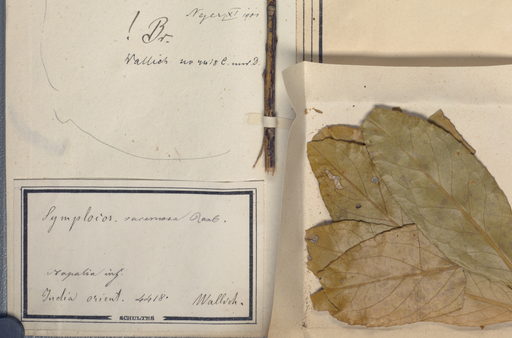 ! Br.
Wallich no 4418 C. und D.
Symplocos racemosa Roxb.
Napalia inf.
India orient. 4418. Wallich.
SCHULTES